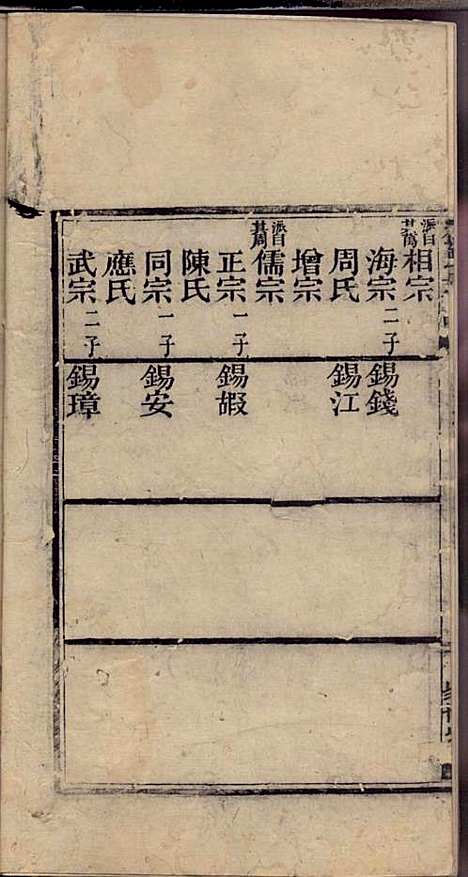 派自其萬相宗
海宗二子
周氏
增宗
派自其周儒宗
正宗一子
陳氏
同宗一子
應氏
武宗二子
錫錢
錫江
錫嘏
錫安
錫璋